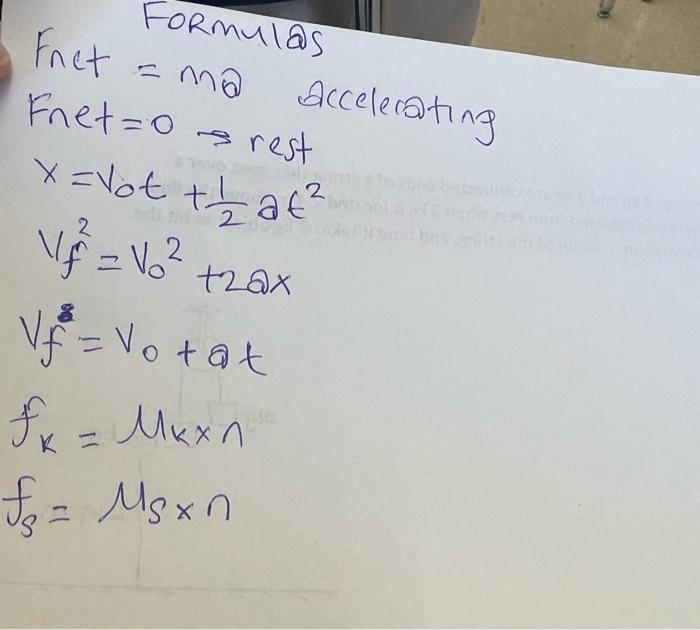 FORMULAS
Fnet = ma accelerating
Fnet=0 → rest
x = V₀t + 1/2 at²
Vf² = V₀² + 2ax
Vf = V₀ + at
fk = Mk x n
fs = Ms x n